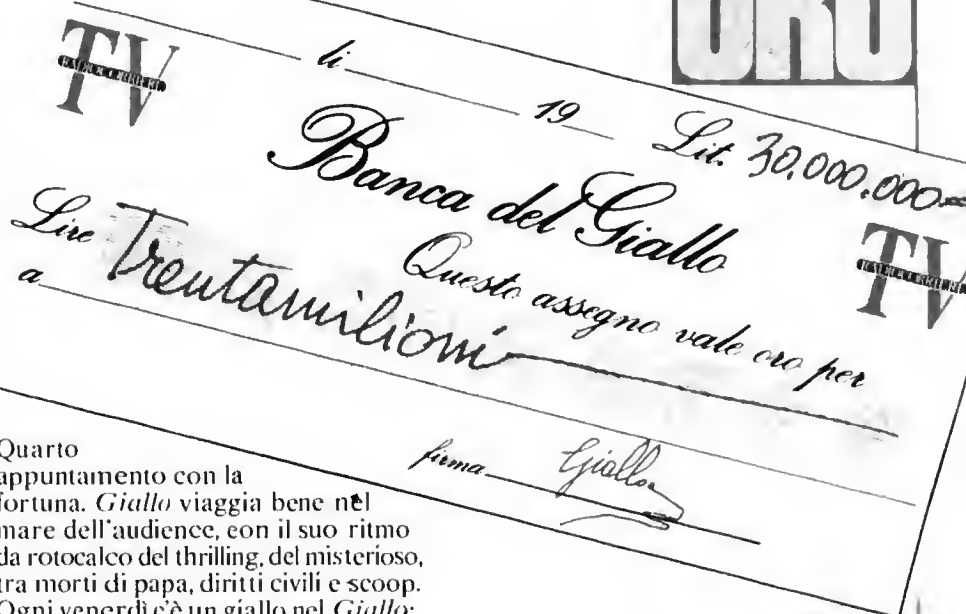 ORO
TV
RADIOCORRIERE
li
19
Lit. 30.000.000=
Banca del Giallo
Lire Trentamilioni
Questo assegno vale oro per
a
TV
RADIOCORRIERE
firma Giallo
Quarto
appuntamento con la
fortuna. Giallo viaggia bene nel
mare dell'audience, con il suo ritmo
da rotocalco del thrilling, del misterioso,
tra morti di papa, diritti civili e scoop.
Ogni venerdì c'è un giallo nel Giallo: